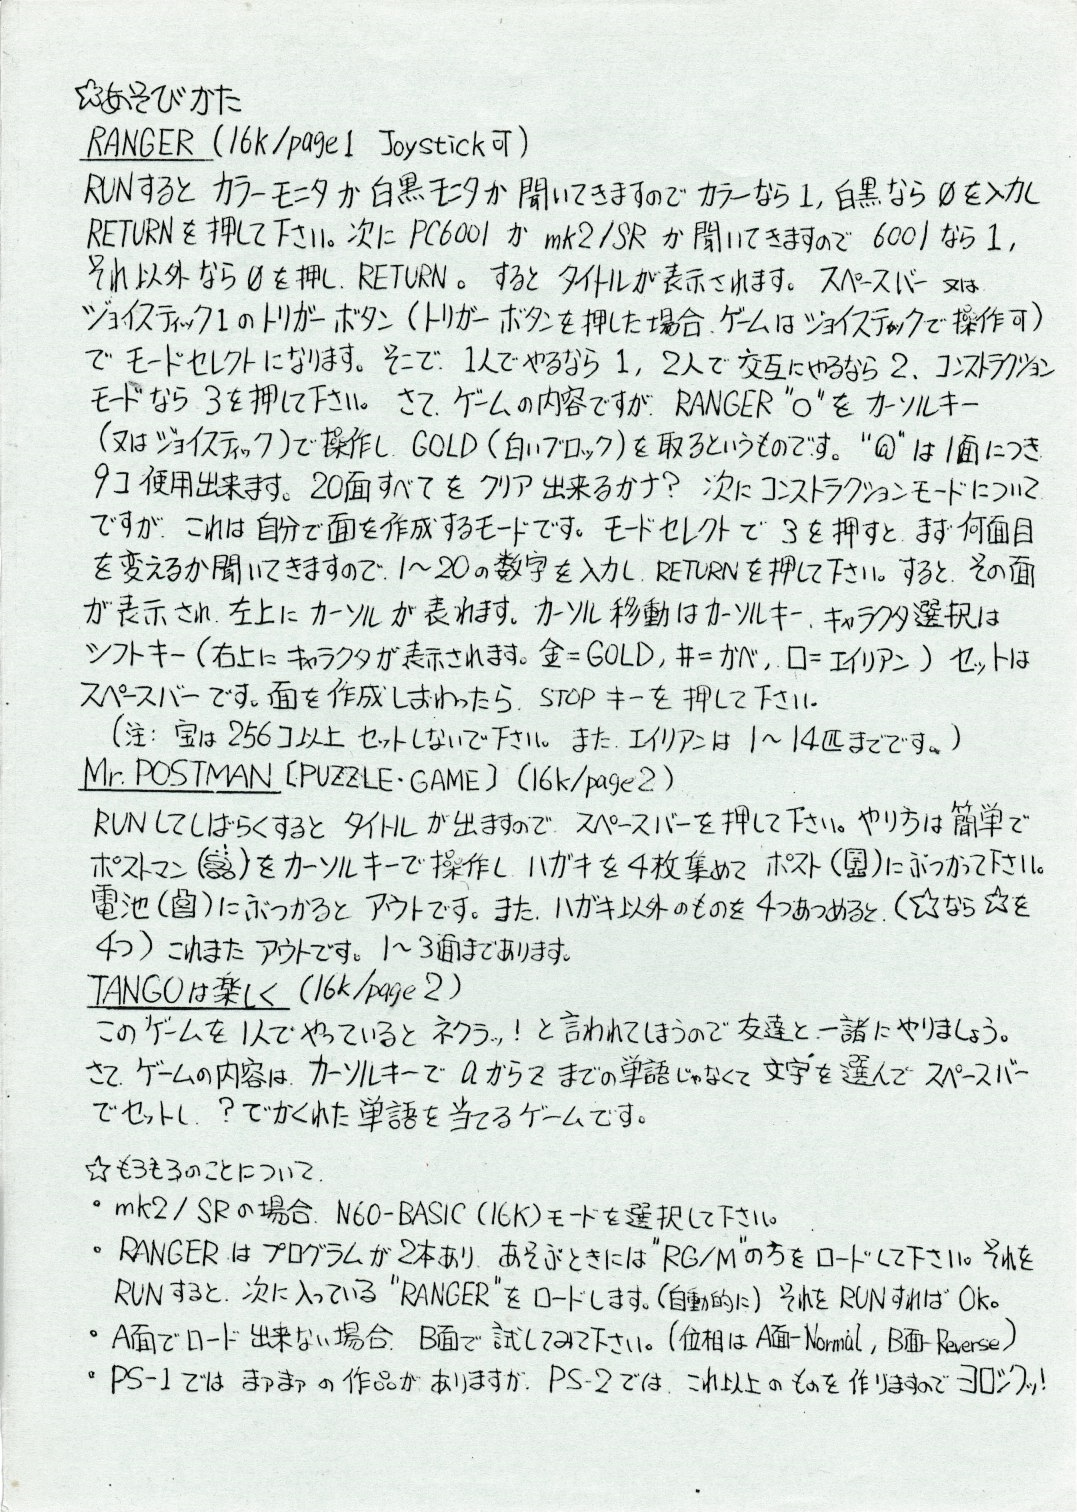 ☆あそびかた
RANGER (16k/page1 Joystick可)
RUNすると カラーモニタか 白黒モニタか 聞いてきますので カラーなら1, 白黒なら 0を入力し
RETURNを押して下さい。次に PC6001 か mk2/SR か聞いてきますので 6001なら1,
それ以外なら0を押し、RETURN。 すると タイトルが表示されます。 スペースバー 又は
ジョイスティック1のトリガーボタン (トリガーボタンを押した場合、ゲームはジョイスティックで操作可)
で モードセレクトになります。そこで、1人でやるなら 1, 2人で交互にやるなら2、コンストラクション
モードなら 3を押して下さい。 さて、ゲームの内容ですが、RANGER "○"を カーソルキー
(又はジョイスティック)で操作し、GOLD (白いブロック)を取るというものです。 "@"は1面につき
9コ使用出来ます。20面すべてを クリア出来るかナ? 次にコンストラクションモードについて
ですが、これは自分で面を作成するモードです。モードセレクトで 3を押すと、まず何面目
を変えるか聞いてきますので、1〜20の数字を入力し、RETURNを押して下さい。すると、その面
が表示され、左上に カーソルが表れます。カーソル移動はカーソルキー、キャラクタ選択は
シフトキー(右上に キャラクタが表示されます。金=GOLD, #=かべ, 口=エイリアン) セットは
スペースバーです。面を作成しおわったら、STOPキーを押して下さい。
(注: 宝は256コ以上 セットしないで下さい。また、エイリアンは 1〜14匹までです。)
Mr. POSTMAN [PUZZLE・GAME] (16k/page2)
RUNしてしばらくすると タイトルが出ますので、スペースバーを押して下さい。やり方は簡単で
ポストマン()をカーソルキーで操作し、ハガキを4枚集めて ポスト()にぶつかって下さい。
電池()にぶつかると アウトです。また、ハガキ以外のものを4つあつめると、(☆なら☆を
4つ) これまた アウトです。1〜3面まであります。
TANGOは楽しく (16k/page2)
このゲームを 1人でやっていると ネクラッ! と言われてしまうので 友達と一諸にやりましょう。
さて、ゲームの内容は、カーソルキーで aからzまでの単語じゃなくて文字を選んで スペースバー
でセットし、?でかくれた単語を当てるゲームです。
☆もろもろのことについて
・mk2/SRの場合、N60-BASIC (16K)モードを選択して下さい。
・RANGERは プログラムが2本あり、あそぶときには"RG/M"の方をロードして下さい。それを
RUNすると、次に入っている "RANGER"をロードします。(自動的に) それをRUNすれば Ok。
・A面でロード出来ない場合、B面で試してみて下さい。(位相はA面-Normal, B面-Reverse)
・PS-1では まァまァの作品がありますが、PS-2では、これ以上のものを作りますので ヨロシクッ!